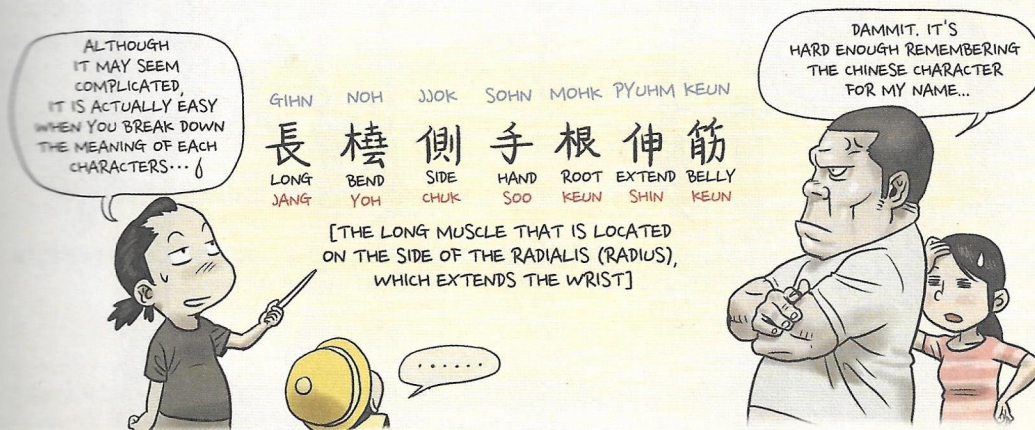 ALTHOUGH
IT MAY SEEM
COMPLICATED,
IT IS ACTUALLY EASY
WHEN YOU BREAK DOWN
THE MEANING OF EACH
CHARACTERS...
GIHN NOH JJOK SOHN MOHK PYUHM KEUN
長 橈 側 手 根 伸 筋
LONG BEND SIDE HAND ROOT EXTEND BELLY
JANG YOH CHUK SOO KEUN SHIN KEUN
[THE LONG MUSCLE THAT IS LOCATED
ON THE SIDE OF THE RADIALIS (RADIUS),
WHICH EXTENDS THE WRIST]
DAMMIT. IT'S
HARD ENOUGH REMEMBERING
THE CHINESE CHARACTER
FOR MY NAME...
......